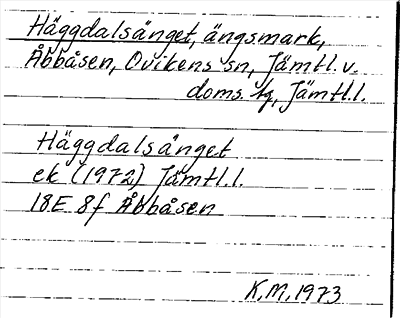 Häggdalsånget, ängsmark,
Åbbåsen, Ovikens sn, Jämtl. v.
doms. tg, Jämtl.l.
Häggdalsånget
ek (1972) Jämtl.l.
18E 8f Åbbåsen
K.M. 1973